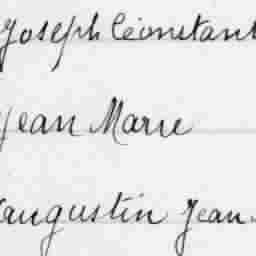 Joseph Léonstant
Jean Marie
augustin Jean